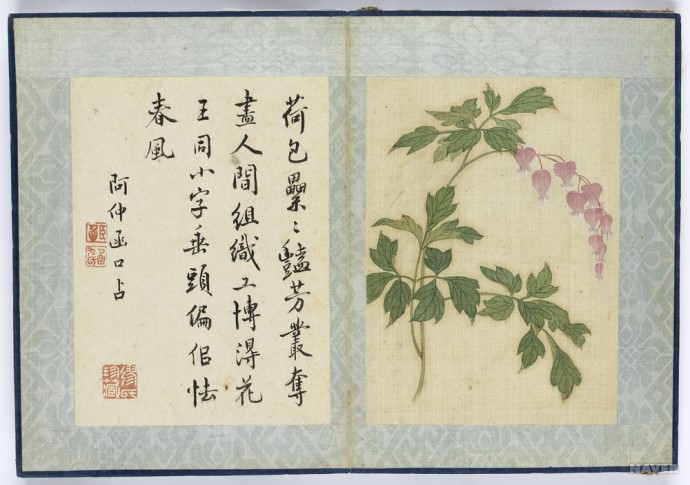 荷包纍〻豔芳叢奪
盡人間組織工愽淂花
王同小字垂頭偏佀怯
春風
阿仲函口占
NAVER